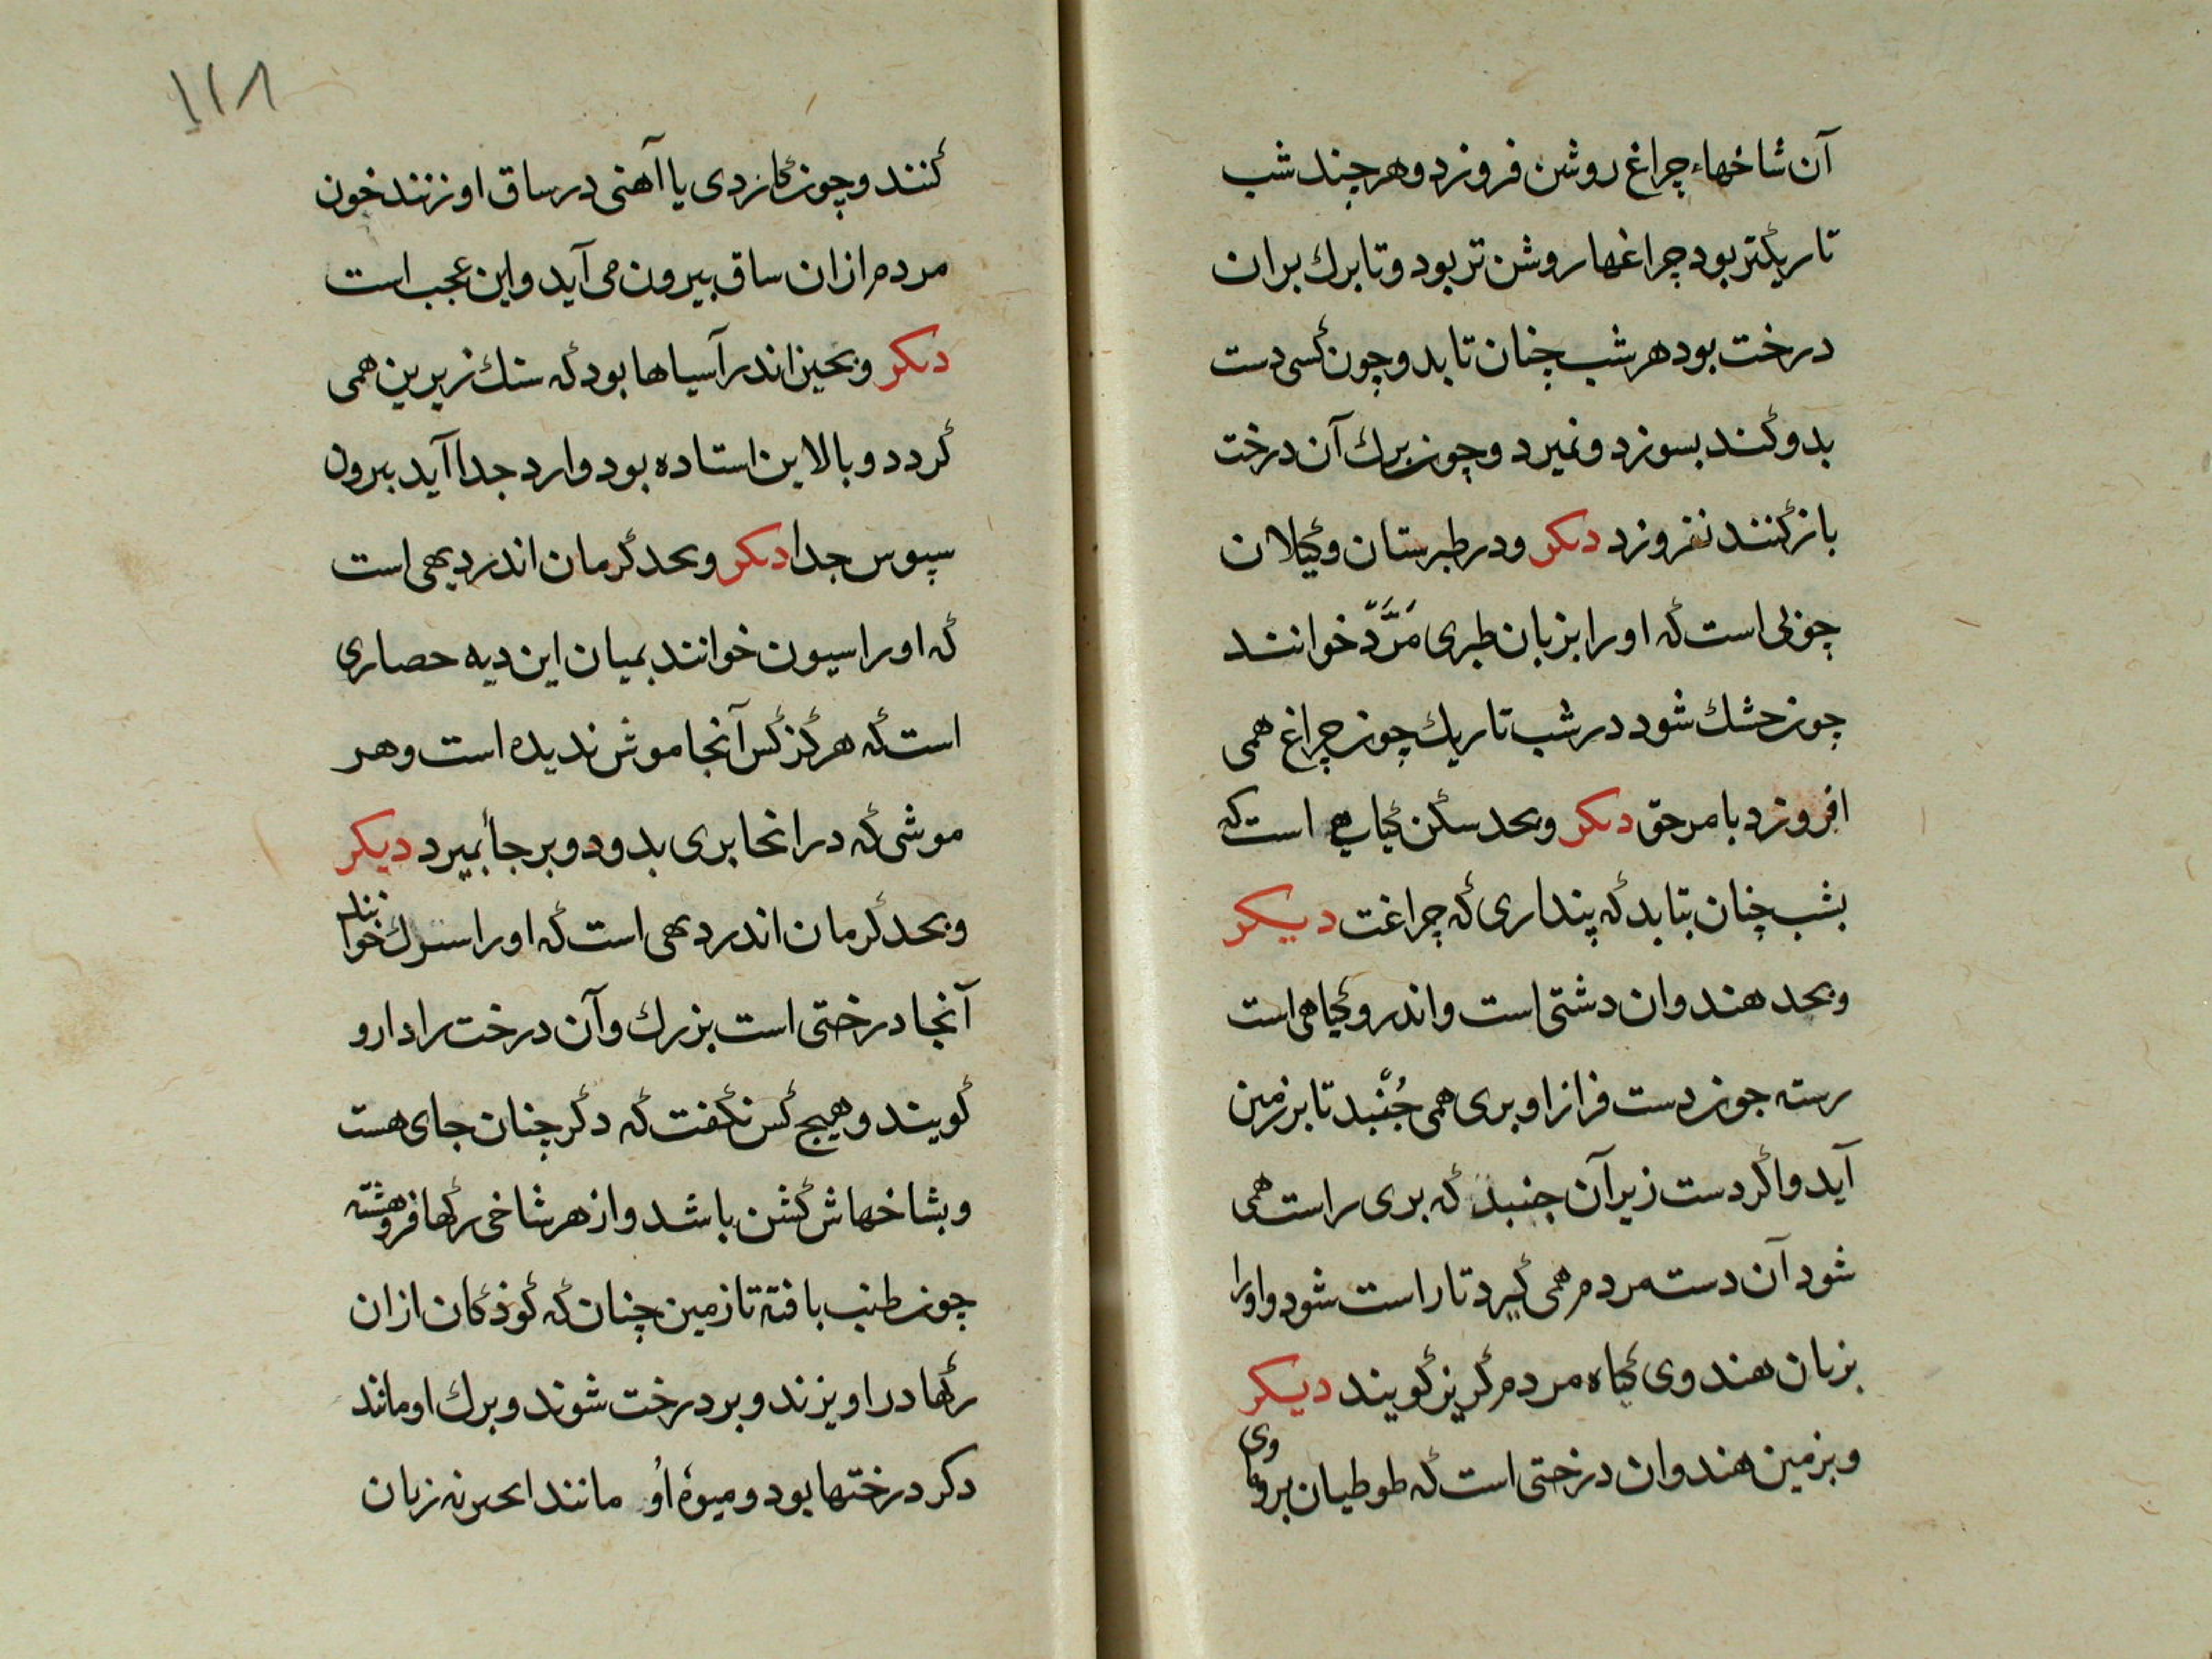 آن شاخهاء چراغ روشن فروزد و هر چند شب
تاریکتر بود چراغها روشن تر بود و تا برك بران
درخت بود هر شب چنان تابد و چون کسی دست
بدو کند بسوزد و نمیرد و چون برك آن درخت
باز کنند نفروزد دیکر و در طبرستان و کیلان
چوبی است که او را بزبان طبری مَرَّدّ خوانند
چون خشك شود در شب تاریك چون چراغ همی
افروزد بامر حق دیکر و بحد سکن کیاهی است که
بشب چنان بتابد که پنداری که چراغت دیکر
و بحد هندوان دشتی است و اندرو کیاهی است
رسته چون دست فراز او بری همی جُنّبد تا بر زمین
آید و اکر دست زیر آن جنبد که بری راست همی
شود آن دست مردم همی کیرد تا راست شود و او را
بزبان هندوی کیاه مردم کریز کویند دیکر
و بزمین هندوان درختی است که طوطیان برو
۱۲۸
کنند و چون کاردی یا آهنی در ساق او زنند خون
مردم ازان ساق بیرون می آید و این عجب است
دیکر و بچین اندر آسیاها بود که سنك زیرین همی
کردد و بالاین استاده بود و ارد جدا آید بیرون
سپوس جدا دیکر و بحد کرمان اندر دیهی است
که او را سیون خوانند بمیان این دیه حصاری
است که هرکز کس آنجا موش ندیده است و هر
موشی که در انجا بری بدود و بر جا بمیرد دیکر
و بحد کرمان اندر دیهی است که او را خوانند
آنجا درختی است بزرك و آن درخت را دارو
کویند و هیچ کس نکفت که دکر چنان جای هست
و بشاخهاش کشن باشد و از هر شاخی رکها فروهشته
چون طنب بافته تا زمین چنان که کوذکان ازان
رکها در اویزند و بر درخت شوند و برك او مانند
دکر درختها بود و میوهٔ اُو مانند زبان